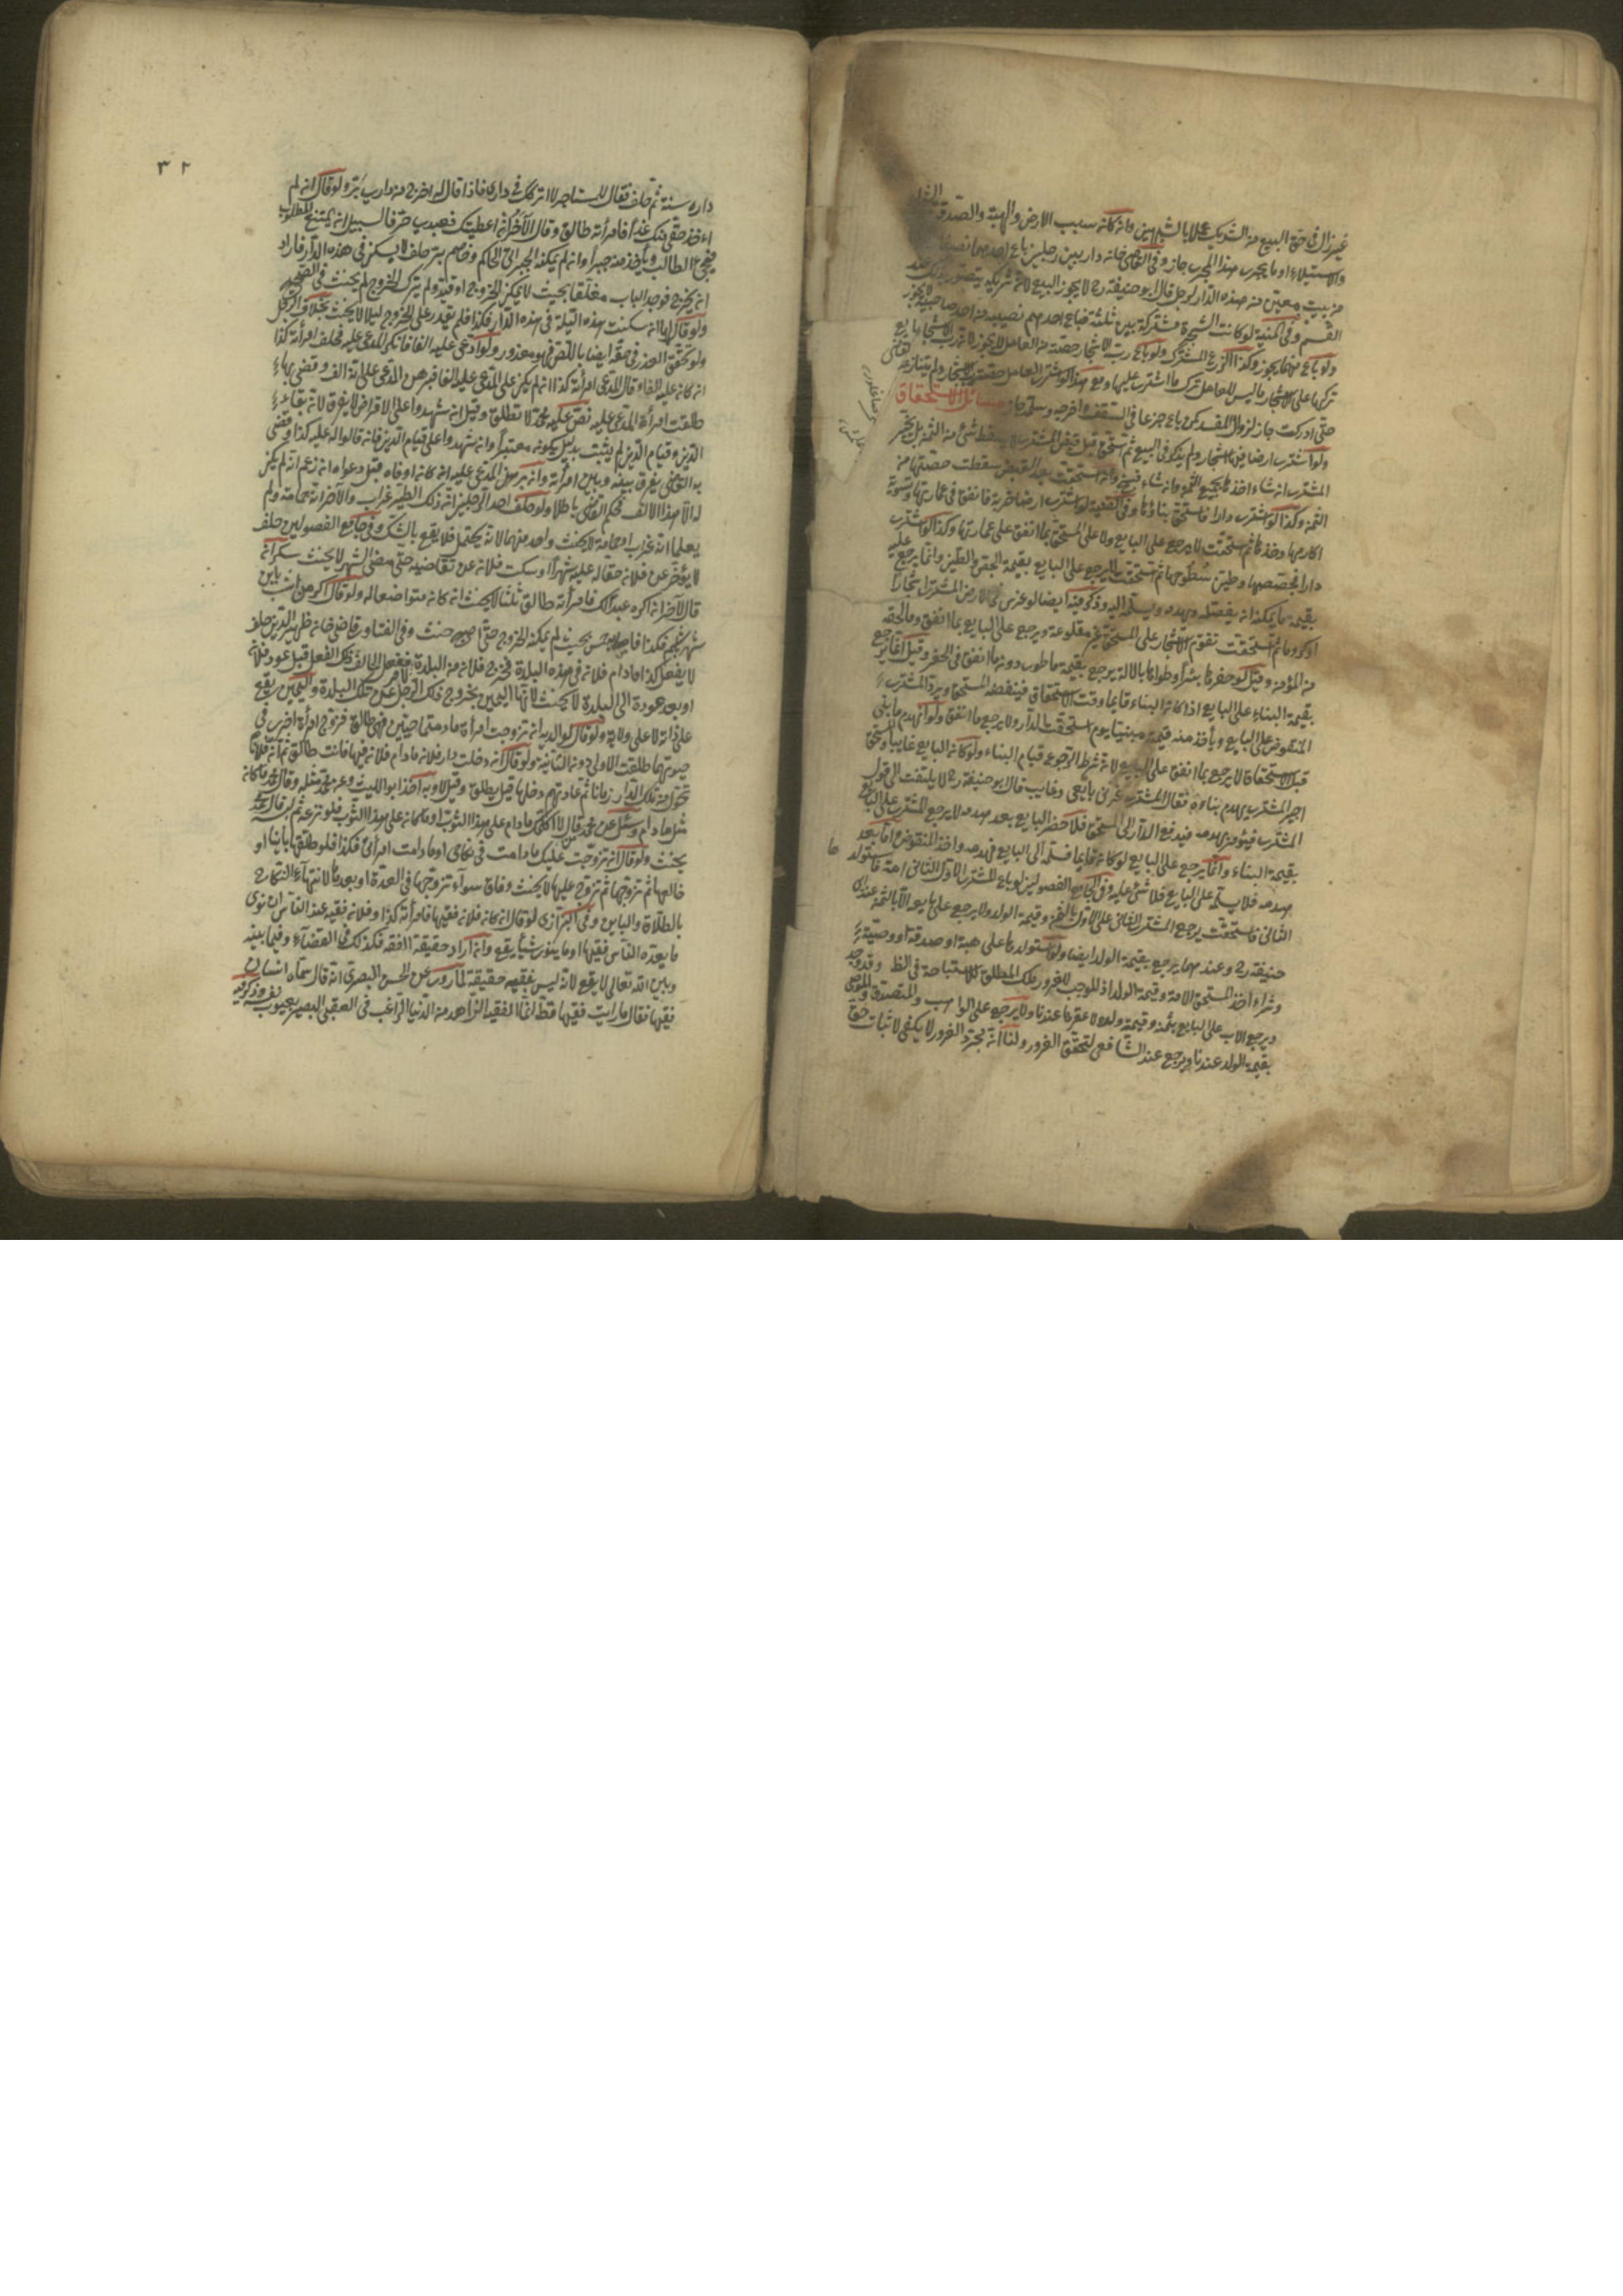 غير ان في حق البيع من الشريك عملا بالشبهين وانه كانه بسبب الارض والهبة والصدقة
والاستيلاء او ما يجري هذا المجرى جاز وفي القاضي خانه دار بين رجلين باع احدهما نصيبه
من بيت معين من هذه الدار لرجل قال ابو حنيفة رح لا يجوز البيع لانه شريكه يتضرر بذلك عند
القسم وفي المنية لو كانت الشجرة مشتركة بين ثلثة فباع احدهم نصيبه من احد صاحبيه لا يجوز
ولو باع منهما يجوز وكذا الزرع المشترك ولو باع رب الاشجار حصته من العامل لا يجوز لانه رب الاشجار بايع
تركها على الاشجار ما ليس للعامل ترك ما اشترى عليها ومع هذا لو اشترى العامل حصته
حتى ادركت جاز لزوال المفسد كمن باع جزعا في السقف واخرجه وسلمه جاز مسائل الاستحقاق
ولو اشترى ارضا فيها اشجار ولم يذكر في البيع ثم استحق قبل قبض المشتري لا يسقط شئ من الثمن بل يخير
المشتري انه شاء اخذ بجميع الثمن وانه شاء فسخه وانه استحقت بعد القبض سقطت حصتها من
الثمن وكذا لو اشترى دارا فاستحق بناؤها وفي القنية لو اشترى ارضا خربة فانفق في عمارتها وتسوية
اكارمها وخذ ثم استحقت لا يرجع على البايع ولا على المستحق بما انفق على عمارتها وكذا لو اشترى
دارا فجصصها وطين سطوحها ثم استحقت لا يرجع على البايع بقيمة الجص والطين وانما يرجع عليه
بقيمة ما يمكنه انه يفصله ويهدمه ويسلمه اليه وذكر فيه ايضا لو غرس في الارض المشتراة اشجارا
او كروما ثم استحقت تقوم الاشجار على المستحق غير مقلوعة ويرجع على البايع بما انفق وما لحقه
من المؤنة وقيل لو حفر بها بئرا وطواها بالآلة يرجع بقيمة ما طوى دونه ما انفق في الحفر وقيل انما يرجع
بقيمة البناء على البايع اذا كانه البناء قايما وقت الاستحقاق فينقضه المستحق ويرد المشتري
المنقوض على البايع ويأخذ منه قيمته مبنيا يوم استحقت الدار ولا يرجع ما انفق ولو انهدم ما بنى
قبل الاستحقاق لا يرجع بما انفق على البايع لانه شرط الرجوع قيام البناء ولو كانه البايع غايبا واستحق
اجبر المشتري بهدم بناءه فقال المشتري غرني بايعي وغايب قال ابو حنيفة رح لا يلتفت الى قول
المشتري فيؤمر بهدمه فيدفع الدار الى المستحق فلا حضر البايع بعد هدمه لا يرجع المشتري على البايع
بقيمة البناء وانما يرجع على البايع لو كانه قايما فسلمه الى البايع فهدمه واخذ المنقوض اما بعد
هدمه فلا يسلمه على البايع فلا شئ عليه وفي جامع الفصولين لو باع المشتري الاول الثاني امة فاستولد
الثاني فاستحقت يرجع المشتري الثاني على الاول بالثمن وقيمة الولد ولا يرجع على بايعه الا بالثمن عند ابي
حنيفة رح وعندهما يرجع بقيمة الولد ايضا ولو استولدها على هبة او صدقة او وصية
وشراء اخذ المستحق الامة وقيمة الولد اذ الموجب للغرور ملك المطلق للاستباحة في الظ وقد وجد
ويرجع الاب على البايع بثمنه وقيمة ولده لا عقرها عندنا ولا يرجع على الواهب والمتصدق والموصي
بقيمة الولد عندنا ويرجع عند الشافعي لتحقق الغرور ولنا انه مجرد الغرور لا يكفي لاثبات حق
٣٢
داره سنة ثم حلف فقال للمستاجر لا اتركك في داري فاذا قال له اخرج من داري يبر ولو قال انه لم
اءخذ حقي منك غدا فامرأته طالق وقال الآخر انه اعطيتك فعبدي حر فالسبيل انه يمتنع المطلوب
فيجئ الطالب ويأخذ منه جبرا وانه لم يمكنه الجبر الى الحاكم وخاصم بتر حلف لا يسكن في هذه الدار فاراد
انه يخرج فوجد الباب مغلقا بحيث لا يمكن الخروج او قيد ولم يترك الخروج لم يحنث في الصحيح
ولو قال لها انه سكنت هذه الليلة في هذه الدار فكذا فلم يقدر على الخروج ليلا لا يحنث بخلاف الرجل
ولو تحقق العذر في حقه ايضا باللص فهو معذور ولو ادعى عليه الفا فانكر المدعى عليه فحلف امرأته كذا
انه كانه عليه الف وقال المدعي امرأته كذا انه لم يكن على المدعى عليه الف فبرهن المدعي على انه الف وقضى بها
طلقت امرأة المدعى عليه نص عليه محمد لا تطلق وقيل انه شهدوا على الاقراض لا يفرق لانه بقاء
الدين وقيام الدين لم يثبت بدليل يكونه معتبرا وانه شهدوا على قيام الدين فانه قالوا له عليه كذا وقضى
به القاضي يفرق بينه وبين امرأته وانه برهن المدعى عليه انه كانه اوفاه قبل دعواه انه زعم انه لم يكن
له الا هذا الالف فحكم القاضي باطلا ولو حلف احد الرجلين انه ذلك الطير غراب والآخر انه حمامة ولم
يعلما انه غراب او حمامة لا يحنث واحد منهما لانه يحتمل فلا يقع بالشك وفي جامع الفصولين حلف
لا يؤخر عن فلانه حقا له عليه شهرا وسكت فلانه عن تقاضيه حتى مضى الشهر لا يحنث سكرانه
قال لآخر انه اكره عبدالك فامرأته طالق ثلثا لا يحنث انه كانه متواضعا له ولو قال
لا يفعل كذا ما دام فلانه في هذه البلدة فخرج فلانه من البلدة ففعل الحالف ذلك الفعل قبل عود فلانه
او بعد عوده الى البلدة لا يحنث لانتهاء اليمين بخروج ذلك الرجل عن تلك البلدة واليمين يقع
على ذاته لا على ولايته ولو قال لوالديه انه تزوجت امرأة ما دمتما حيين فهي طالق فتزوج امرأة اخرى في
حيوتهما طلقت الاولى دونه الثانية ولو قال انه دخلت دار فلانه ما دام فلانه فيها فانت طالق ثم انه فلانا
تحول من تلك الدار زمانا ثم عاد ثم دخلها قيل يطلق وقيل لا وبه اخذ ابو الليث
مثل ما دام وسئل عن محمد قال لا اكلمك ما دام على هذا الثوب او ما كانه على هذا الثوب فلو نزعه ثم
يحنث ولو قال انه تزوجت عليك ما دامت في نكاحي او ما دامت امرأتي فكذا فلو طلقها باينا او
خالعها ثم تزوجها ثم تزوج عليها لا يحنث وفاق سواء تزوجها في العدة او بعدها لانتهاء النكاح
بالطلاق والباين وفي البزازي لو قال انه كانه فلانه فقيها فامرأته كذا وفلانه فقيه عند الناس ان نوى
ما يعده الناس فقيها او ما ينو شيأ يقع وانه اراد حقيقة الفقه فكذلك في القضاء وفيما بينه
وبين الله تعالى لا يقع لانه ليس بفقيه حقيقة لما روى عن الحسن البصري انه قال سماه انسان
فقيها فقال ما رايت فقيها قط انما الفقيه الزاهد من الدنيا الراغب في العقبى البصير بعيوب نفسه وذكر فيه